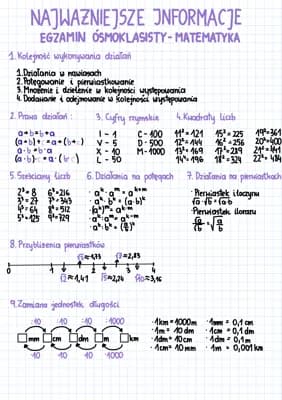 NAJWAŻNIEJSZE INFORMACJE
EGZAMIN ÓSMOKLASISTY - MATEMATYKA
1. Kolejność wykonywania działań
1. Działania w nawiasach
2. Potęgowanie i pierwiastkowanie
3. Mnożenie i dzielenie w kolejności występowania
4. Dodawanie i odejmowanie w kolejności występowania
2. Prawa działań:
a+b=b+a
(a+b)+c=a+(b+c)
a·b=b·a
(a·b)·c=a·(b·c)
3. Cyfry rzymskie
I - 1 C - 100
V - 5 D - 500
X - 10 M - 1000
L - 50
4. Kwadraty liczb
11²=121 15²=225 19²=361
12²=144 16²=256 20²=400
13²=169 17²=289 21²=441
14²=196 18²=324 22²=484
5. Sześciany liczb
2³=8 6³=216
3³=27 7³=343
4³=64 8³=512
5³=125 9³=729
6. Działania na potęgach
7. Działania na pierwiastkach
Pierwiastek iloczynu
√a·√b=√a·b
Pierwiastek ilorazu
8. Przybliżenia pierwiastków
√3≈1,73 √8≈2,83
0 1 2 3 4
√2≈1,41 √5≈2,24 √10≈3,16
9. Zamiana jednostek długości
:10 :10 :10 :1000
mm cm dm m km
·10 ·10 ·10 ·1000
1km=1000m 1mm=0,1cm
1m=10dm 1cm=0,1dm
1dm=10cm 1dm=0,1m
1cm=10mm 1m=0,001km